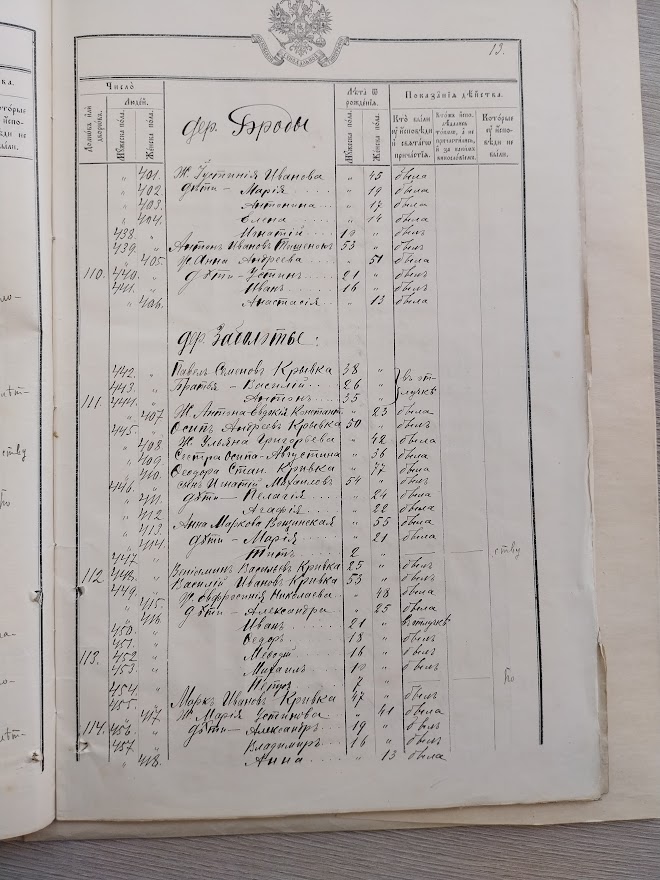 13.
Число
Домовъ или дворовъ.
Людей.
Мужеска пола.
Женска пола.
дер. Броды
Лѣта ѿ рожденїѧ.
Мужеска пола.
Женска пола.
Показанїѧ дѣйства.
Кто были у исповѣди и свѧтагѡ причастїѧ.
Которые у исповѣди не были.
" 401. Ж. Густинія Иванова " 45 была
" 402 дѣти - Марія " 19 была
" 403. Антонина " 17 была
" 404. Елена " 14 была
438. " Игнатій 19 " былъ
439. " Антонъ Ивановъ Тищенокъ 53 " былъ
" 405. Ж. Анна Андреева " 51 была
110. 440. " дѣти - Устинъ 21 " былъ
441. " Иванъ 16 " былъ
" 406. Анастасія " 13 была
дер. Заболтье:
442. " Павелъ Семеновъ Крывка 38 "
443. " Братья - Василій 26 " въ от-
111. 444. " Антонъ 35 " лучкѣ
" 407. Ж. Антона Константи " 23 была
445. " Осипъ Андреевъ Крывка 50 " былъ
" 408. Ж. Ульяна Григорьева " 42 была
" 409. Сестра Осипа - Августина " 36 была
" 410. Ѳеодора Стан. Кривка " 77 была
446. " сынъ Игнатій Михаиловъ 54 " былъ
" 411. дѣти - Пелагія " 24 была
" 412 Агафія " 22 была
" 413. Анна Маркова Вощинская " 55 была
" 414. дѣти - Марія " 21 была
447. " Титъ 2 "
112 448. " Веніоминъ Васильевъ Кривка 25 " былъ
449. " Василій Ивановъ Кривка 53 " былъ
" 415. Ж. Евфросинія Николаева " 48 была
" 416. дѣти - Александра " 25 была
450. " Иванъ 21 " въ отлучкѣ
451. " Ѳедоръ 18 " былъ
113. 452 " Меѳодій 16 " былъ
453. " Михаилъ 10 " былъ
454. " Петръ 7 "
455. " Маркъ Ивановъ Кривка 47 " былъ
" 417 Ж. Марія Устинова " 41 была
114. 456. " дѣти - Александръ 19 " былъ
457. " Владимиръ 16 " былъ
" 418. Анна " 13 была
ству